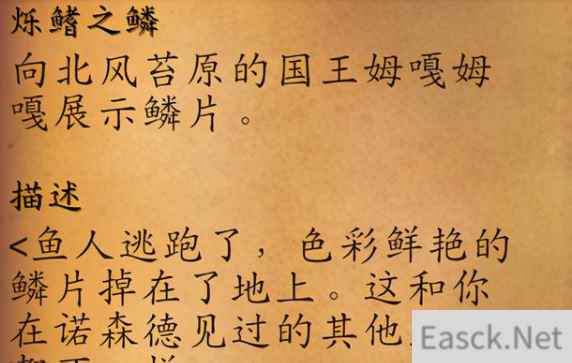 烁鳍之鳞
向北风苔原的国王姆嘎姆
嘎展示鳞片。
描述
<鱼人逃跑了，色彩鲜艳的
鳞片掉在了地上。这和你
在诺森德见过的其他
Easck.Net